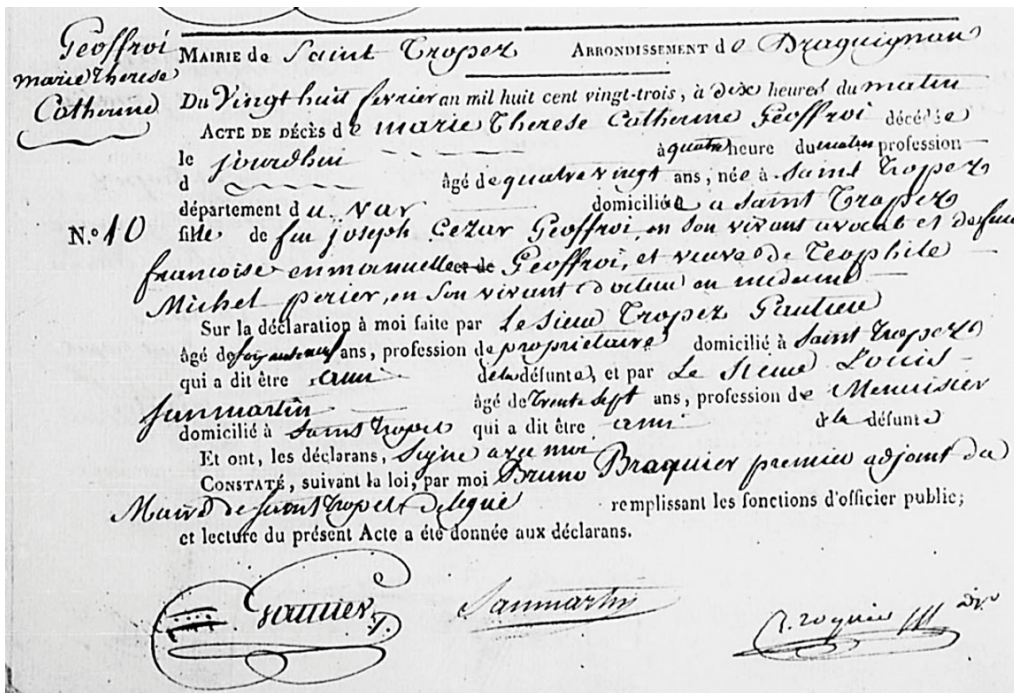 Geoffroi
marie Therese
Catherine
MAIRIE de Saint Tropez ARRONDISSEMENT de Draguignan
Du Vingt huit fevrier an mil huit cent vingt-trois, à dix heures du matin
ACTE DE DÉCÈS de marie Therese Catherine Geoffroi décédée
le jourdhui à quatre heure du matin profession
d âgé de quatre vingt ans, née à Saint Tropez
département du Var domiciliée a Saint Tropez
N.º 10 fille de feu joseph Cezar Geoffroi, en son vivant avocat et de feue
francoise emmanuelle et de Geoffroi, et veuve de Teophile
Michel perier, en Son vivant Docteur en medecine
Sur la déclaration à moi faite par Le Sieur Tropez Gautier
âgé de ans, profession de propriétaire domicilié à Saint Tropez
qui a dit être ami de la défunte, et par Le Sieur Louis
Sanmartin âgé de trente Sept ans, profession de Menuisier
domicilié à Saint Tropez qui a dit être ami de la défunte
Et ont, les déclarans, Signé avec moi
CONSTATÉ, suivant la loi, par moi Bruno Braquier premier adjoint du
Maire de Saint Tropez Delegué remplissant les fonctions d'officier public;
et lecture du présent Acte a été donnée aux déclarans.
Gautier Sanmartin